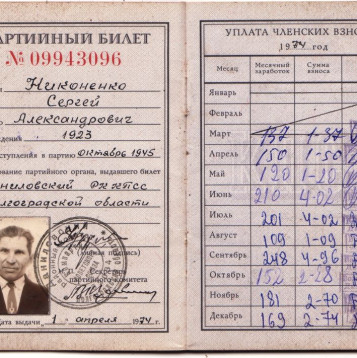 АРТИЙНЫЙ БИЛЕТ
№ 09943096
Никоненко
Сергей
Александрович
ждения 1923
вступления в партию октябрь 1945
нование партийного органа, выдавшего билет
РК КПСС
лгоградской области
(личная подпись)
Секретарь
партийного комитета
Дата выдачи 1 апреля 1974 г.
УПЛАТА ЧЛЕНСКИХ ВЗНО
1974 год
Месяц Месячный заработок Сумма взноса
Январь
Февраль
Март 137 1-37
Апрель 150 1-50
Май 120 1-20
Июнь 210 4-02
Июль 201 4-02
Август 109 1-09
Сентябрь 248 4-96
Октябрь 152 2-28
Ноябрь 181 2-70
Декабрь 169 2-54